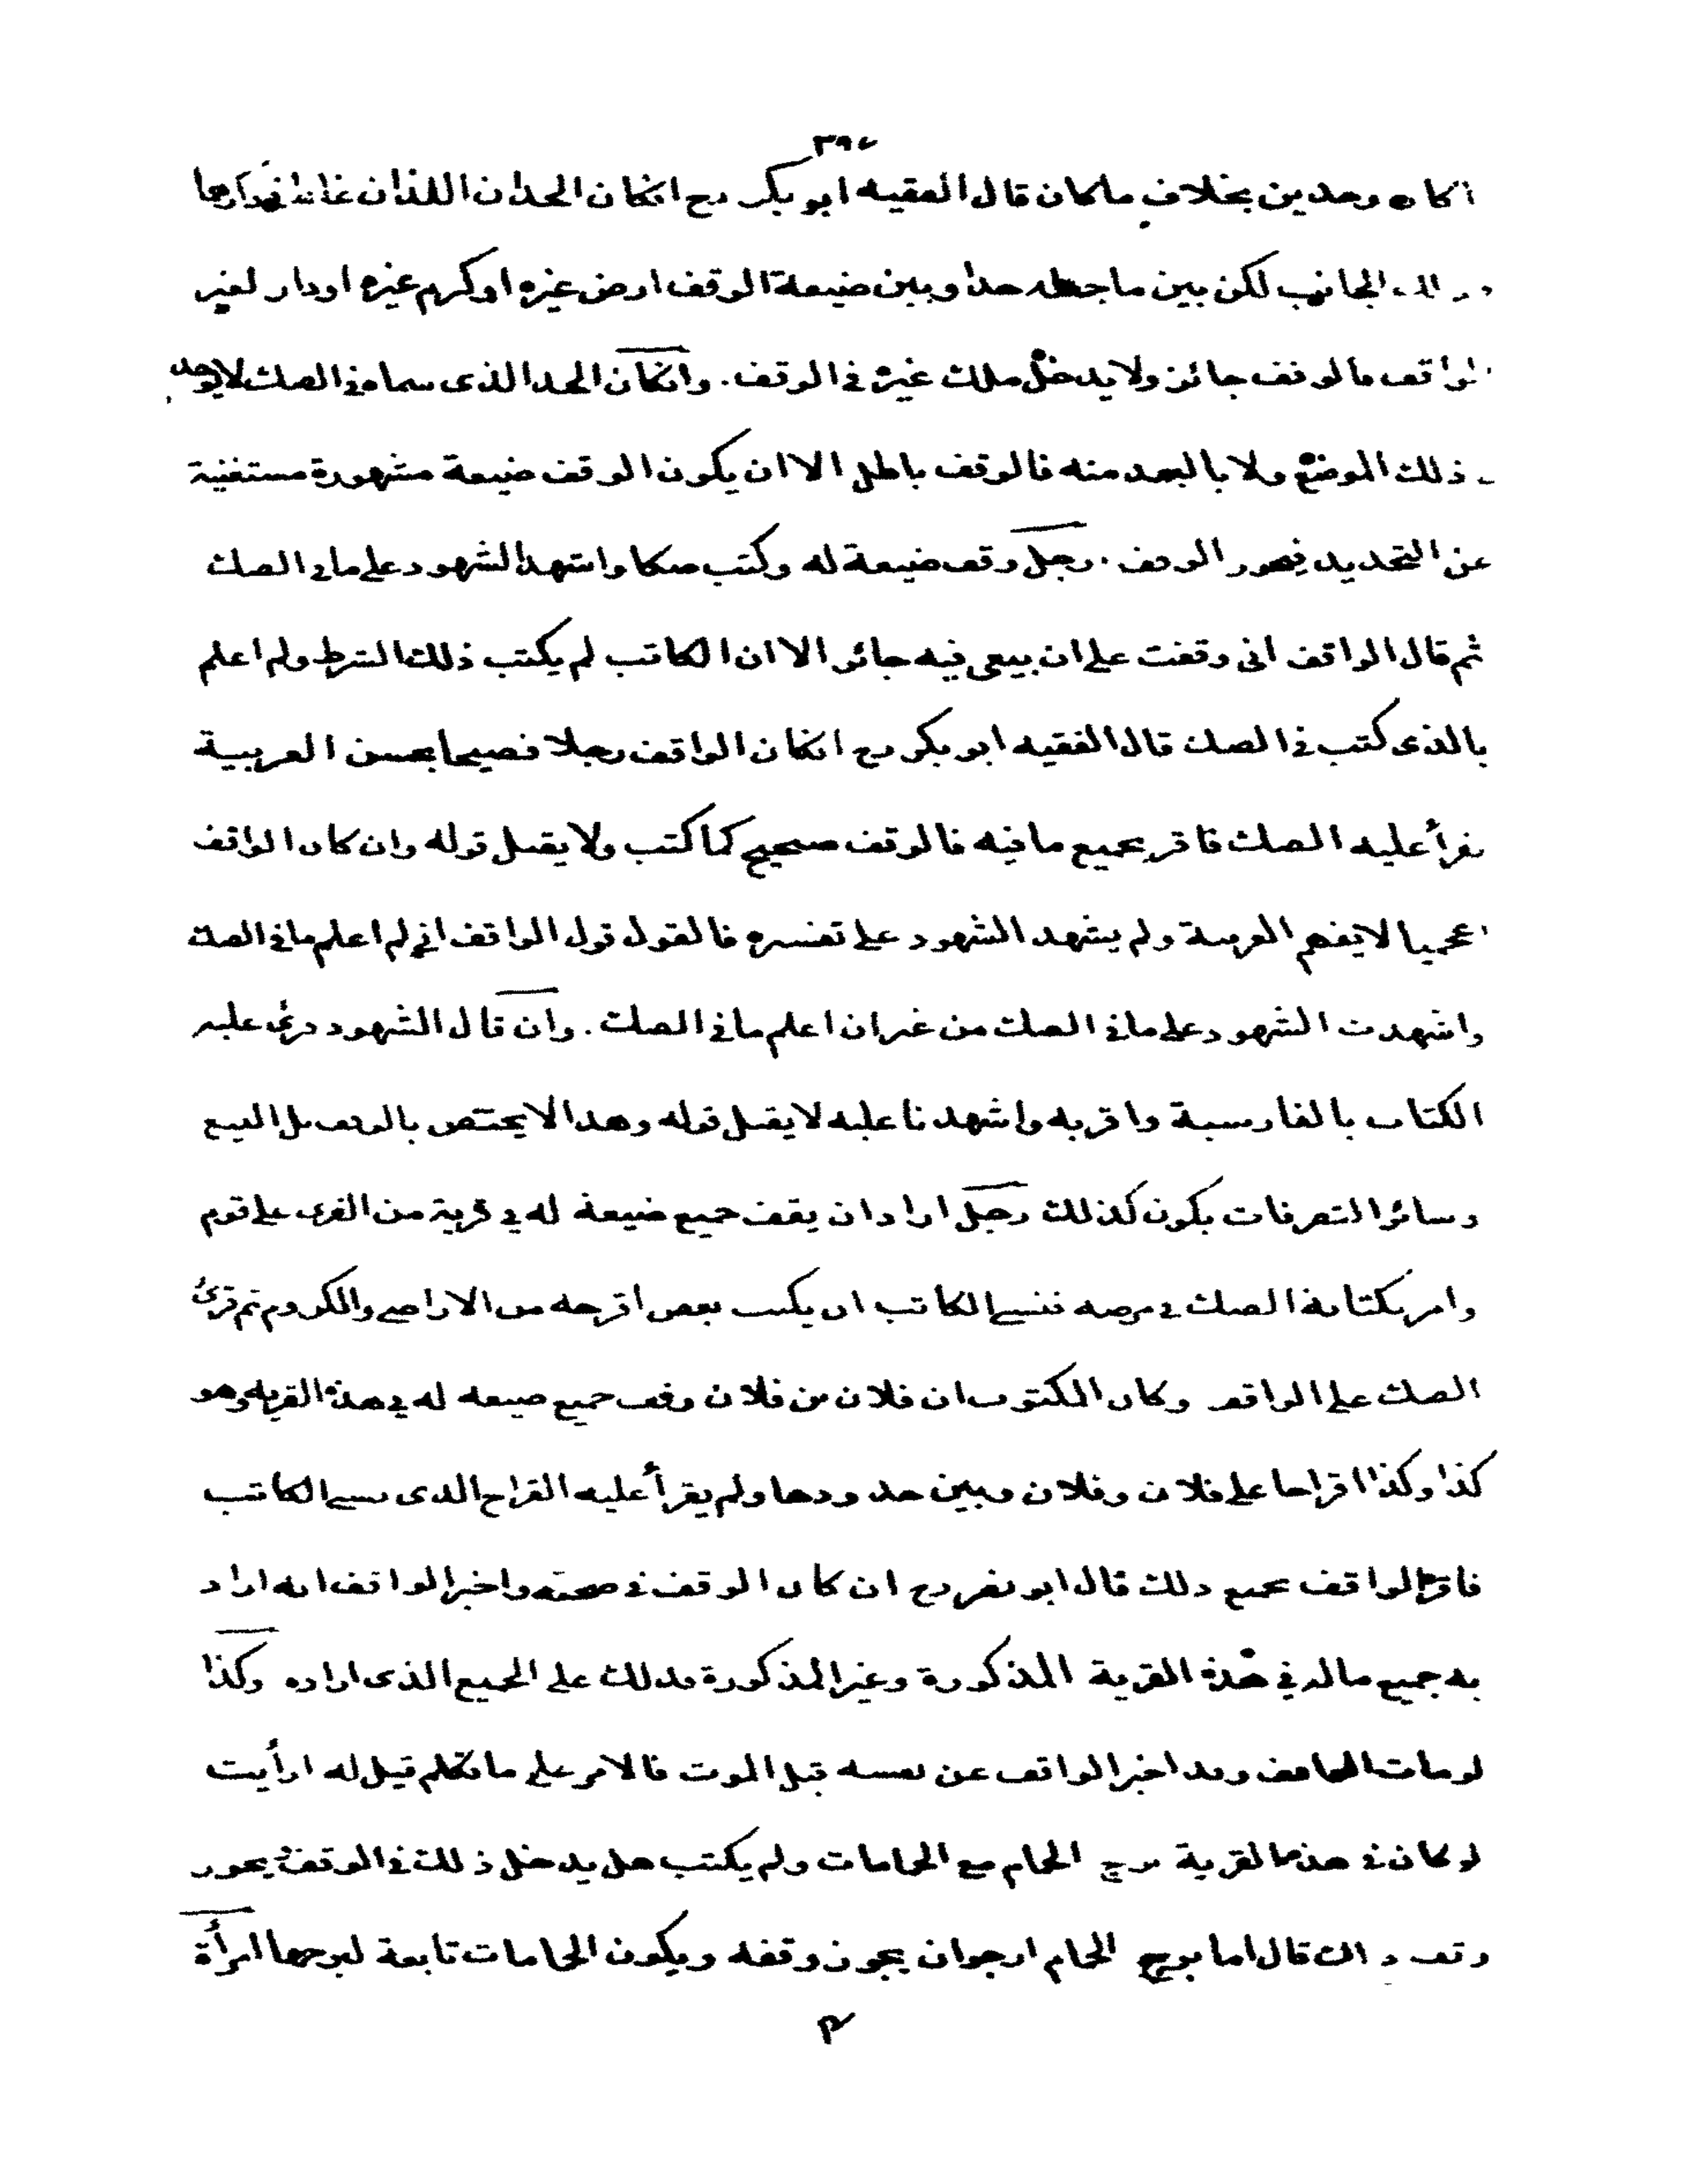 ٣٩٧
كان وحدين بخلاف ما كان قال الفقيه ابو بكر رح انكان الحدان اللذان
الجانب لكن بين ما جعله حدا وبين ضيعة الوقف ارض غيره او كرم غيره او دار لغير
الواقف فالوقف جائز ولا يدخل ملك غيره في الوقف. وانكان الحد الذى سماه في الصك لا يوجد
ذلك الموضع ولا بالبعد منه فالوقف باطل الا ان يكون الوقف ضيعة مشهورة مستغنية
عن التحديد فيجوز الوقف. رجل وقف ضيعة له وكتب صكا واشهد الشهود على ما في الصك
ثم قال الواقف انى وقفت على ان بيعى فيه جائز الا ان الكاتب لم يكتب ذلك الشرط ولم اعلم
بالذى كتب في الصك قال الفقيه ابو بكر رح انكان الواقف رجلا فصيحا يحسن العربية
فقرأ عليه الصك فاقر بجميع ما فيه فالوقف صحيح كما كتب ولا يقبل قوله وان كان الواقف
اعجميا لا يفهم العربية ولم يشهد الشهود على تفسيره فالقول قول الواقف اني لم اعلم ما في الصك
واشهدت الشهود على ما في الصك من غير ان اعلم ما في الصك. وان قال الشهود قرئ عليه
الكتاب بالفارسية واقر به واشهدنا عليه لا يقبل قوله وهذا لا يختص بالوقف بل البيع
وسائر التصرفات يكون كذلك رجل اراد ان يقف جميع ضيعة له في قرية من القرى على قوم
وامر بكتابة الصك في مرضه فنسى الكاتب ان يكتب بعض اقرحه من الاراضى والكروم ثم قرئ
الصك على الواقف وكان المكتوب ان فلان بن فلان وقف جميع ضيعه له في هذه القرية وهو
كذا وكذا قراحا على فلان وفلان وبين حدودها ولم يقرأ عليه القراح الذى نسى الكاتب
فاقر الواقف بجميع ذلك قال ابو نصر رح ان كان الوقف في صحته واخبر الواقف انه اراد
به جميع ماله في هذه القرية المذكورة وغير المذكورة فذلك على الجميع الذى اراده وكذا
لو مات الواقف وقد اخبر الواقف عن نفسه قبل الموت فالامر على ما تكلم قيل له ارأيت
لو كان في هذه القرية برج الحمام مع الحمامات ولم يكتب هل يدخل ذلك في الوقف يجوز
وقف ذلك قال اما بروج الحمام ارجو ان يجوز وقفه ويكون الحمامات تابعة لبروجها امرأة